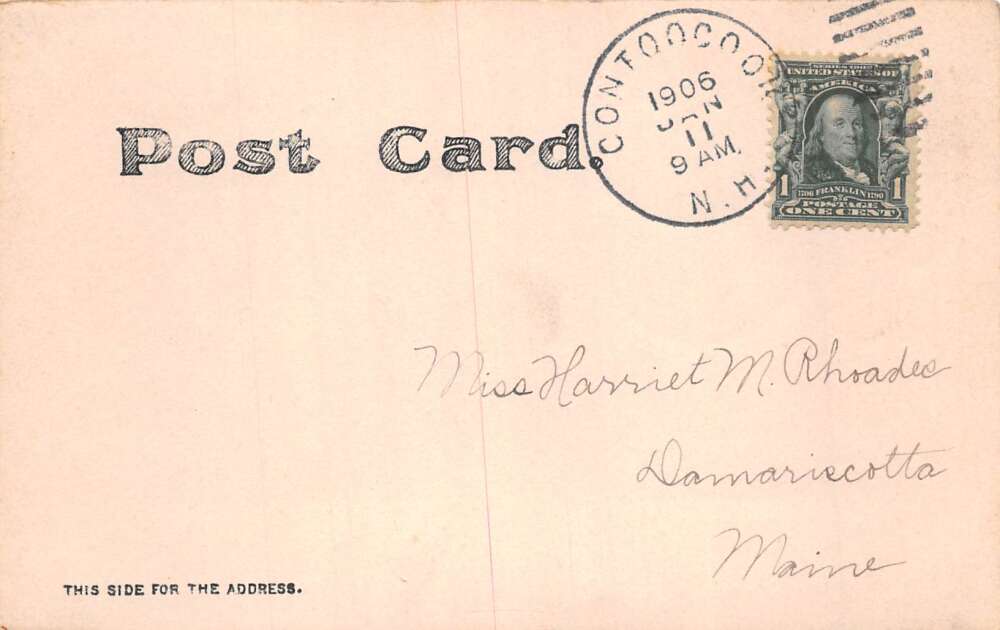 Post Card.
CONTOOCOOK
1906
JAN
11
9 AM
N.H.
SERIES 1902
UNITED STATES OF
AMERICA
1 1706 FRANKLIN 1790 1
POSTAGE
ONE CENT
Miss Harriet M. Rhoades
Damariscotta
Maine
THIS SIDE FOR THE ADDRESS.